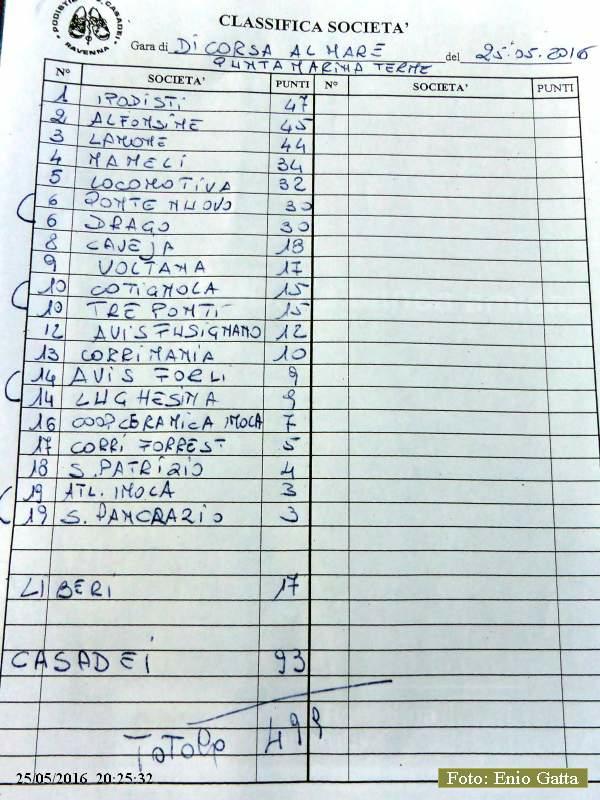 PODISTI C. CASADEI
RAVENNA
CLASSIFICA SOCIETA'
Gara di DI CORSA AL MARE del 25.05.2016
PUNTA MARINA TERME
N° SOCIETA' PUNTI N° SOCIETA' PUNTI
1 IPODISTI 47
2 ALFONSINE 45
3 LAMONE 44
4 MAMELI 34
5 LOCOMOTIVA 32
6 PONTE NUOVO 30
6 DRAGO 30
8 CAVEJA 18
9 VOLTANA 17
10 COTIGNOLA 15
10 TRE PONTI 15
12 AVIS FUSIGNANO 12
13 CORRIMANIA 10
14 AVIS FORLI 9
14 LUGHESINA 9
16 COOP CERAMICA IMOLA 7
17 CORRI FORREST 5
18 S. PATRIZIO 4
19 ATL. IMOLA 3
19 S. PANCRAZIO 3
LIBERI 17
CASADEI 93
TOTALE 499
25/05/2016 20:25:32
Foto: Enio Gatta